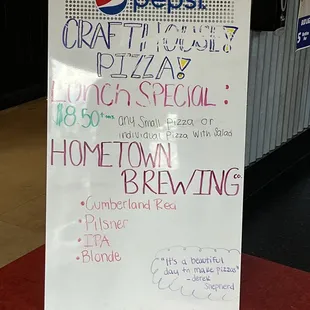 pepsi
CRAFTHOUSE
PIZZA!
LUNCH SPECIAL:
$8.50 any small Pizza or
individual Pizza with Salad
HOMETOWN
BREWING CO.
• Cumberland Red
• Pilsner
• IPA
• Blonde
"It's a beautiful
day to make pizzas"
- derek
shepherd